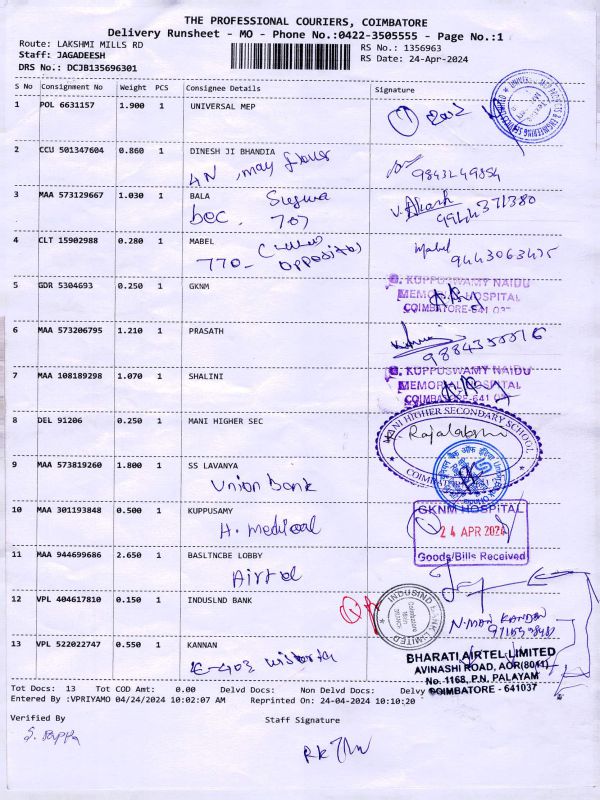 THE PROFESSIONAL COURIERS, COIMBATORE
Delivery Runsheet - MO - Phone No.:0422-3505555 - Page No.:1
Route: LAKSHMI MILLS RD
RS No.: 1356963
Staff: JAGADEESH
RS Date: 24-Apr-2024
DRS No.: DCJB135696301
S No Consignment No Weight PCS Consignee Details Signature
1 POL 6631157 1.900 1 UNIVERSAL MEP
2 CCU 501347604 0.860 1 DINESH JI BHANDIA
4N, may flower
9843249854
3 MAA 573129667 1.030 1 BALA Suguna
DEC, 707
V. Akash
9944371380
4 CLT 15902988 0.280 1 MABEL
770- opposite)
Mabel
9443063475
5 GDR 5304693 0.250 1 GKNM
G. KUPPUSWAMY NAIDU
MEMORIAL HOSPITAL
COIMBATORE-641 037
6 MAA 573206795 1.210 1 PRASATH
9884350016
7 MAA 108189298 1.070 1 SHALINI
G. KUPPUSWAMY NAIDU
MEMORIAL HOSPITAL
COIMBATORE-641 037
8 DEL 91206 0.250 1 MANI HIGHER SEC
MANI HIGHER SECONDARY SCHOOL
Rajalakshmi
9 MAA 573819260 1.800 1 SS LAVANYA
Union Bank
10 MAA 301193848 0.500 1 KUPPUSAMY
H. Medical
GKNM HOSPITAL
24 APR 2024
Goods/Bills Received
11 MAA 944699686 2.650 1 BASLTNCBE LOBBY
Airtel
12 VPL 404617810 0.150 1 INDUSLND BANK
INDUSIND BANK LIMITED
N. MANI KANDAN
13 VPL 522022747 0.550 1 KANNAN
E-403 wistoria
BHARATI AIRTEL LIMITED
AVINASHI ROAD, AOR(8041)
No. 1168, P.N. PALAYAM
COIMBATORE - 641037
Tot Docs: 13 Tot COD Amt: 0.00 Delvd Docs: Non Delvd Docs: Delvy
Entered By :VPRIYAMO 04/24/2024 10:02:07 AM Reprinted On: 24-04-2024 10:10:20
Verified By Staff Signature